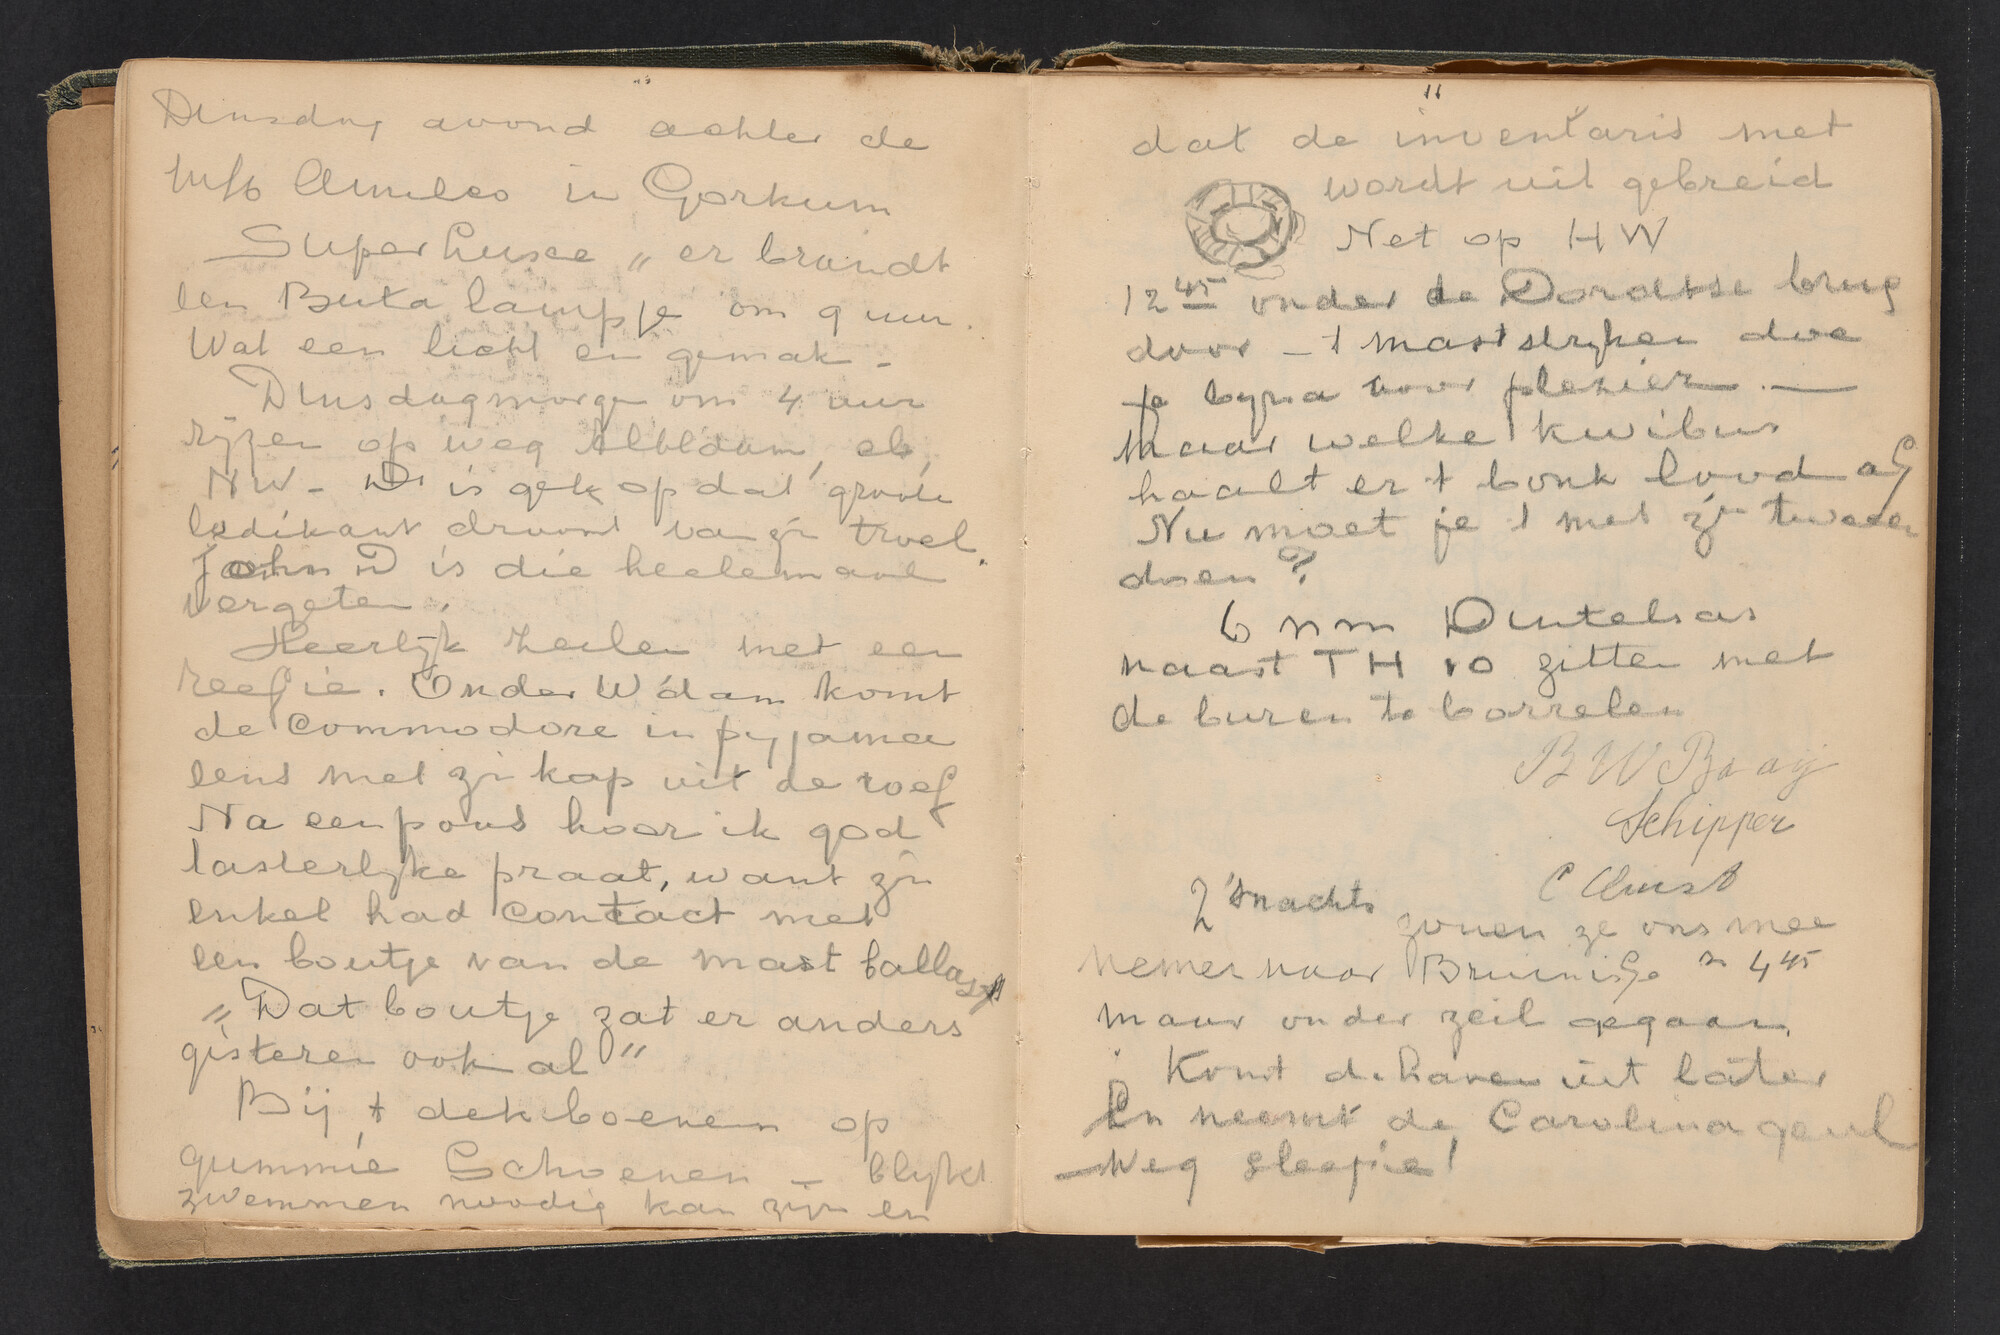 Dinsdag avond achter de
in Gorkum
Superheusee „ er brandt
een Buta lampje om 9 uur.
Wat een licht en gemak -
Dinsdagmorge om 4 uur
rijzen op weg Albldam, eb,
NW - D. is gek op dat groote
ledikant droomt van z'n troel.
John D is die heelemaal
vergeten.
Heerlijk zeilen met een
reefie. Onder W'dam komt
de Commodore in pyjamee
eens met z'n kop uit de roef
Na een poos hoor ik god
lasterlyke praat, want z'n
enkel had contact met
een boutje van de mast ballast
„Dat boutje zat er anders
gisteren ook al"
Bij 't dekboenen op
gummie Schoenen - blykt
zwemmen noodig kan zijn en
11
dat de inventaris met
wordt uit gebreid
Net op HW
12 45 onder de Dordtse brug
door - 't mast stryken doe
je byna voor plezier. —
Maar welke kwibus
haalt er 't bonk lood af
Nu moet je 't met z'n tweeen
doen?
6 nm Dintelsas
naast TH 10 zitten met
de buren te borrelen
B W Baaij
Schipper
C
2 'snachts zouen ze ons mee
nemen naar Bruinisse 4 45
maar onder zeil gegaan.
Komt de haven uit later
En neemt de Carolinageul
Weg sleepie!